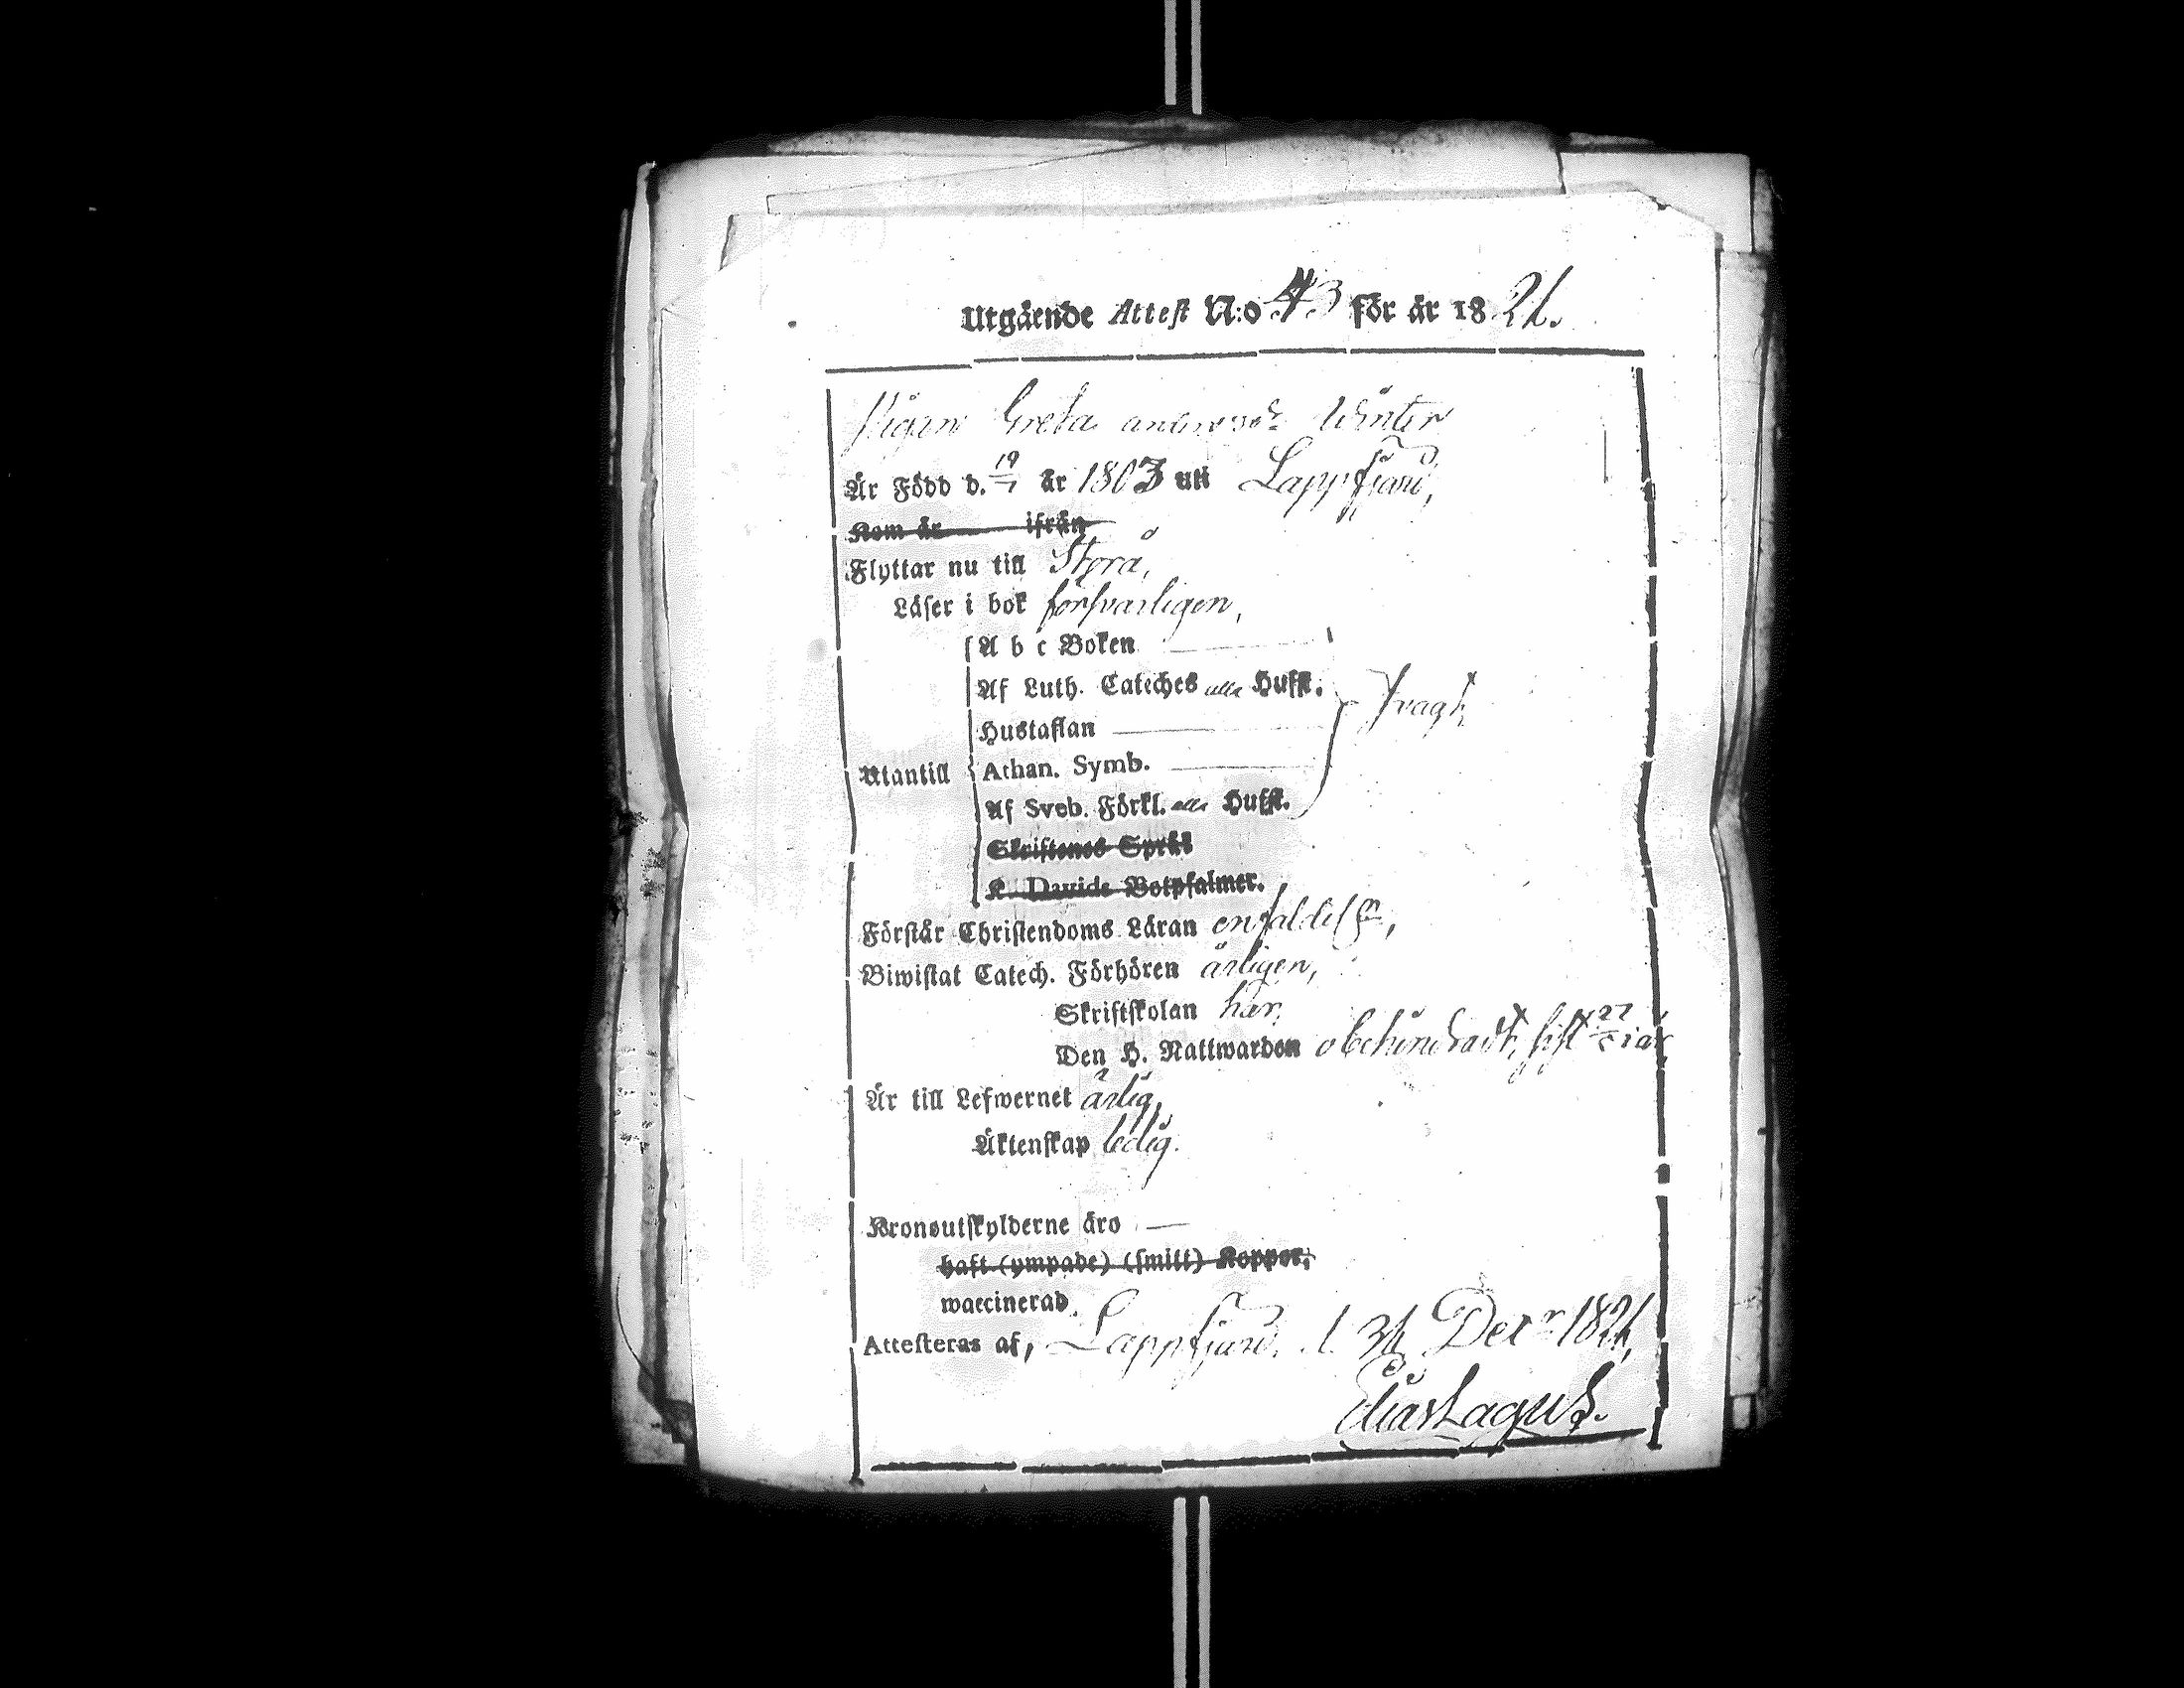 Utgående Attest N:o 43 för år 1821.
Pigan Greta Winter
Är Född d. 19/7 år 1803 uti Lappfjärd,
Kom år ifrån
Flyttar nu till Storå,
Läser i bok försvarligen,
A b c Boken
Af Luth. Cateches alla Hufst.
Hustaflan
Utantill Athan. Symb.
Af Sveb. Förkl. alla Hufst.
Skriftenes Språk
K. Davids Botpsalmer.
Förstår Christendoms Läran enfaldel.
Biwistat Catech. Förhören årligen,
Skriftskolan här,
Den H. Nattwarden obehindradt, sist i år
Är till Lefwernet ärlig,
Äktenskap ledig.
Kronoutskylderne äro —
haft (ympade) (smitt) Koppor,
waccinerad.
Attesteras af, Lappfjärd, d. 31 Decr 1821,
Elias Lagus.